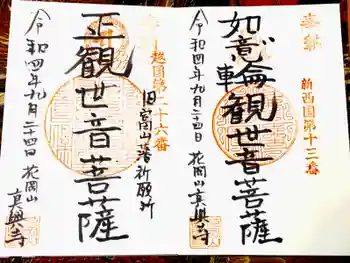 奉納
新西国第十三番
如意輪観世音菩薩
令和四年九月二十四日
花岡山真興寺
越国第二十六番
旧富山藩祈願所
正観世音菩薩
令和四年九月二十四日
花岡山
真興寺